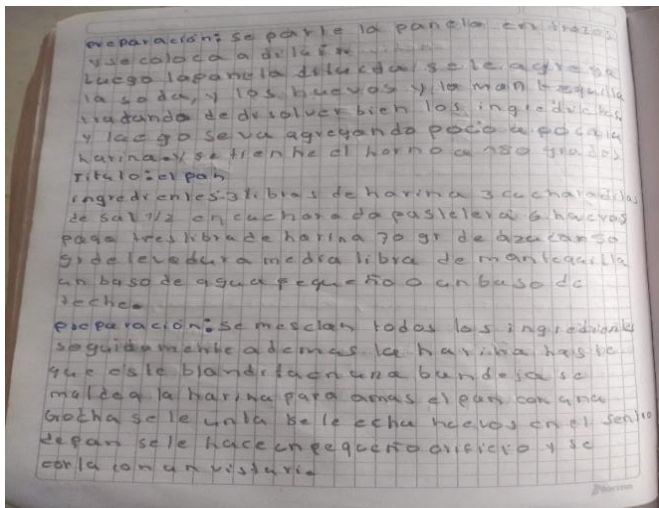 preparación: se parte la panela en trozos
y se coloca a diluir
Luego la panela diluida se le agrega
la soda, y los huevos y la mantequilla
tratando de disolver bien los ingredientes
y luego se va agregando poco a poco la
harina y se tienhe el horno a 180 grados
Titulo: el pan
ingredientes: 3 libras de harina 3 cucharaditas
de sal 1/2 en cucharada pastelera 6 huevos
paga tres libra de harina 70 gr de azucar 50
gr de levedura media libra de mantequilla
un baso de agua pequeño o un baso de
leche.
preparación: se mesclan todos los ingredientes
seguidamente ademas la harina haste
que este blandita en una bandeja se
moldea la harina para amas el pan con una
brocha se le unta se le echa huevos en el sen
de pan se le hace en pequeño orificio y se
corta con un visturi.
Norma